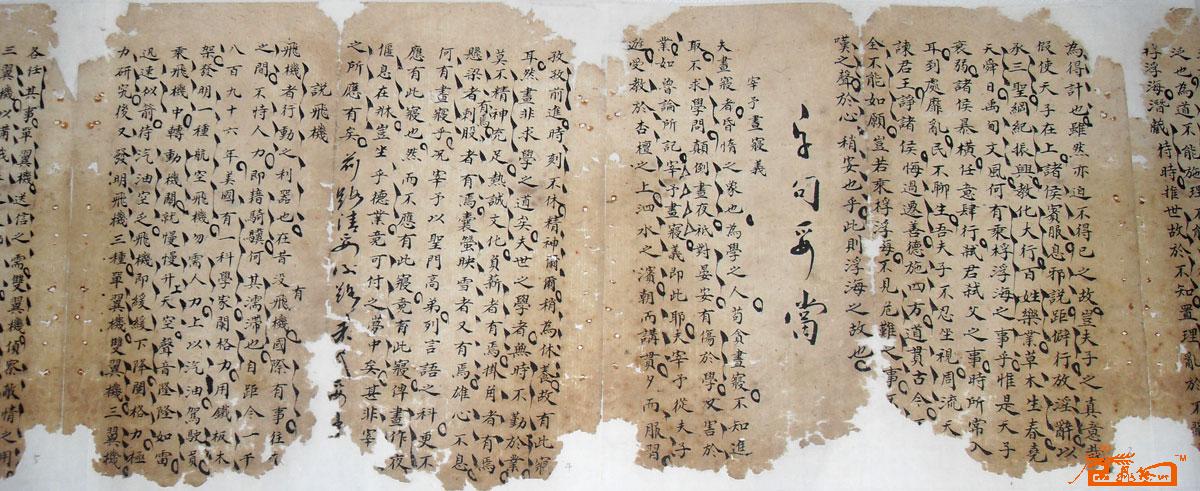 泛也為道不能施
桴浮海潛藏待時推世故於不知置理亂於
為得計也雖然亦迫不得已之故豈夫子之真意哉
假使天子在上諸侯賓服息邪說距僻行放淫辭以
承三聖綱紀振興教化大行百姓樂業草木生春堯
天舜日禹甸文風何有乘桴浮海之事乎惟是天子
衰弱諸侯暴橫任意肆行弒君弒父之事時所常入
耳到處靡亂民不聊生吾夫子不忍坐視周流天
諫君王諍諸侯悔過遷善德施四方道貫古今
全不能如願豈若乘桴浮海不見危難之事
嘆之聲於心稍安也乎此則浮海之故也
字句妥當
宰予晝寢義
夫晝寢者昏惰之象也為學之人苟貪晝寢不知進
取不求學問顛倒晝夜祇對晏安有傷於學又害於
業如曾論所記宰予晝寢義即此耶夫宰予從夫子
遊受教於杏壇之上泗水之濱朝而講貫夕而服習
孜孜前進時刻不休精神爾爾稍為休養故有此寢
耳然晝非求學之道矣夫世之學者無時不勤於業
莫不精神充足熱誠文化負薪者有焉掛角者有焉
懸梁者有焉刺股者有焉囊螢映雪者又有焉雄心不息
何有晝寢乎况宰予以聖門高弟列言語之科更不
應有此寢也然而不應有此寢竟有此寢俾晝作夜
偃息在牀豈坐乎德業竟可付之夢中矣甚非宰
之所應有矣
說飛機
飛機者行動之利器也在昔沒飛機國際有事往
有
之間不恃人力即藉騎驥何其濡滯也自距今一千
八百九十六年美國有一科學家闌格力用鐵板木
架發明一種航空飛機勿需人力上以汽油駕駛員
乘飛機中轉動機關就慢慢升上天空聲音隆隆如雷
迅速似箭待汽油空乏飛機即緩緩下降闌格力極
力研究後又發明飛機三種單翼機雙翼機三翼機
各任其事單翼機送信之需雙翼機偵察敵情之用
三翼機